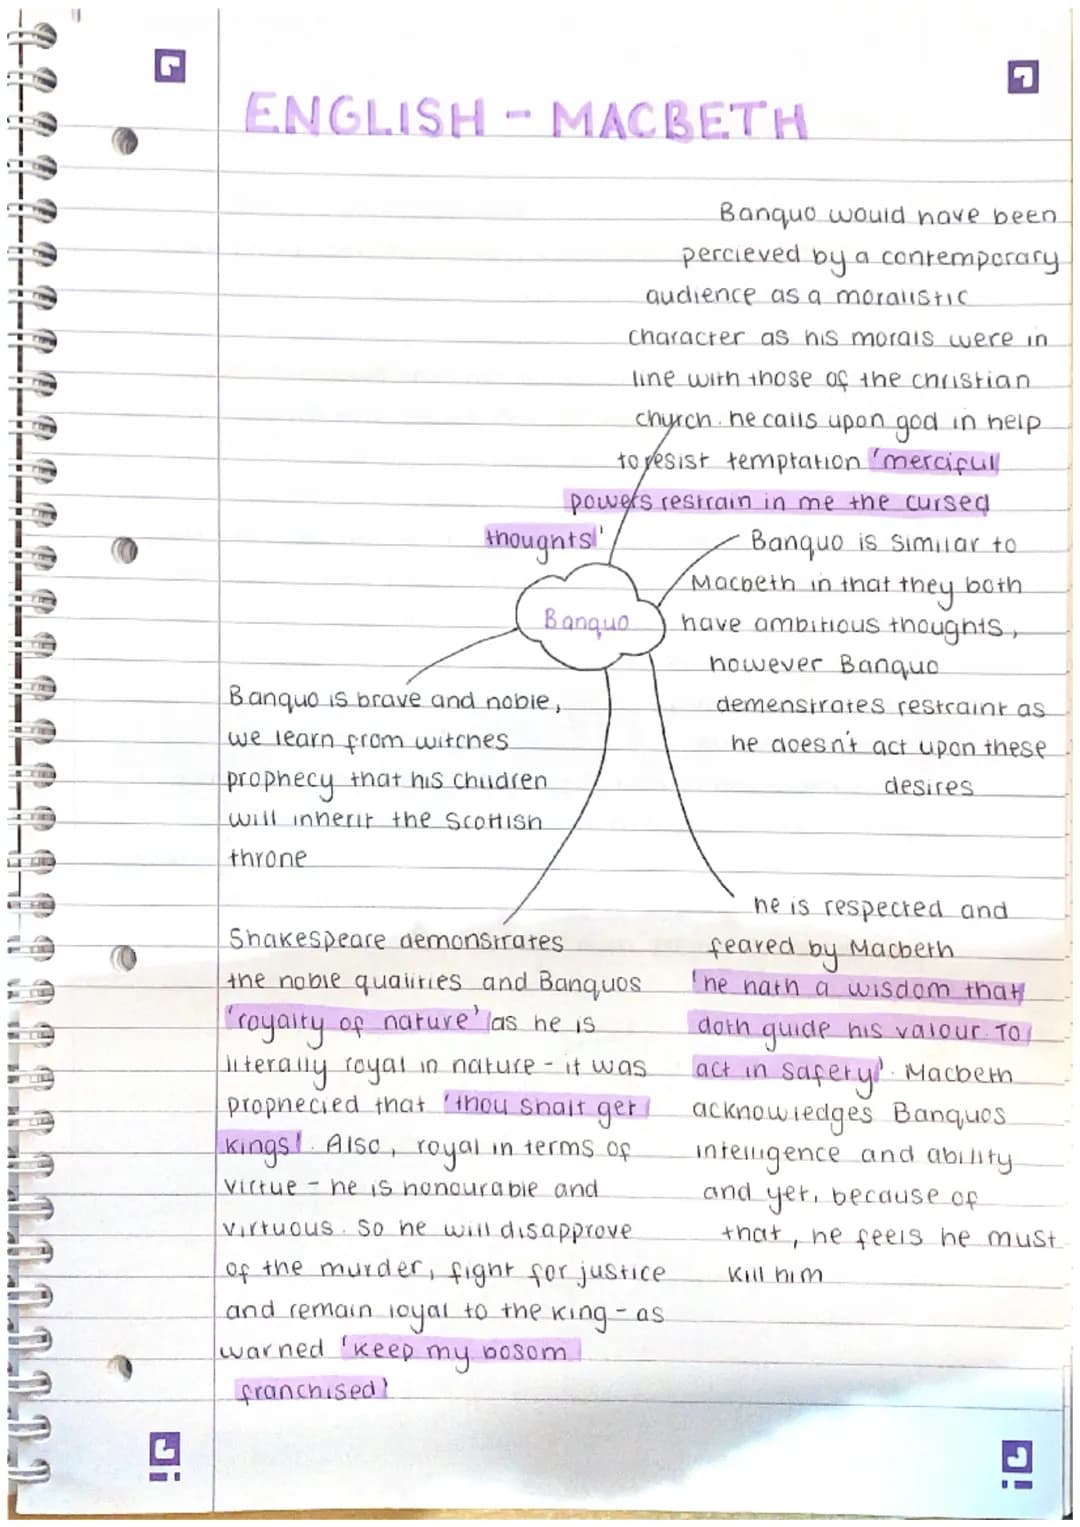 ENGLISH - MACBETH
Banquo would have been
percieved by a contemporary
audience as a moralistic
character as his morals were in
line with those of the christian
church. he calls upon god in help
to resist temptation 'merciful
powers restrain in me the cursed
thoughts'
Banquo is similar to
Macbeth in that they both
have ambitious thoughts,
however Banquo
demenstrates restraint as
he doesn't act upon these
desires
Banquo
Banquo is brave and noble,
we learn from witches
prophecy that his children
will inherit the scottish
throne
Shakespeare demonstrates
the noble qualities and Banquos
'royalty of nature' as he is
literally royal in nature - it was
prophecied that 'thou shalt get
kings'. Also, royal in terms of
virtue - he is honourable and
virtuous. So he will disapprove
of the murder, fight for justice
and remain loyal to the king - as
warned 'keep my bosom
franchised'
he is respected and
feared by Macbeth
'he hath a wisdom that
doth guide his valour. To
act in safety'. Macbeth
acknowledges Banquos
intelligence and ability
and yet, because of
that, he feels he must
kill him